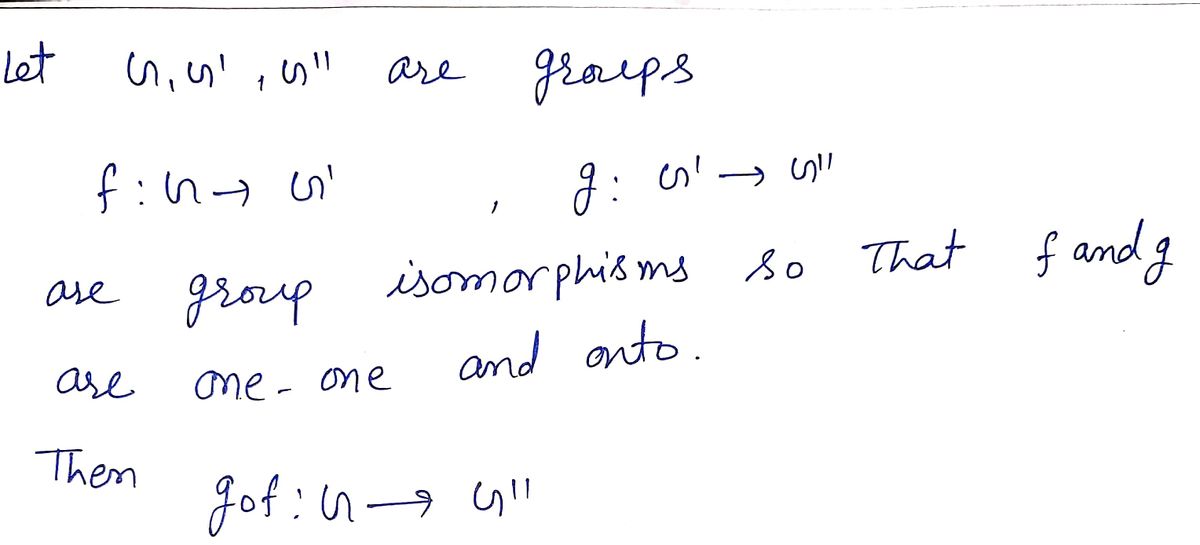 Let G, G', G'' are groups
f: G → G' , g: G' → G''
are group isomorphisms so That f and g
are one-one and onto.
Then gof: G → G''